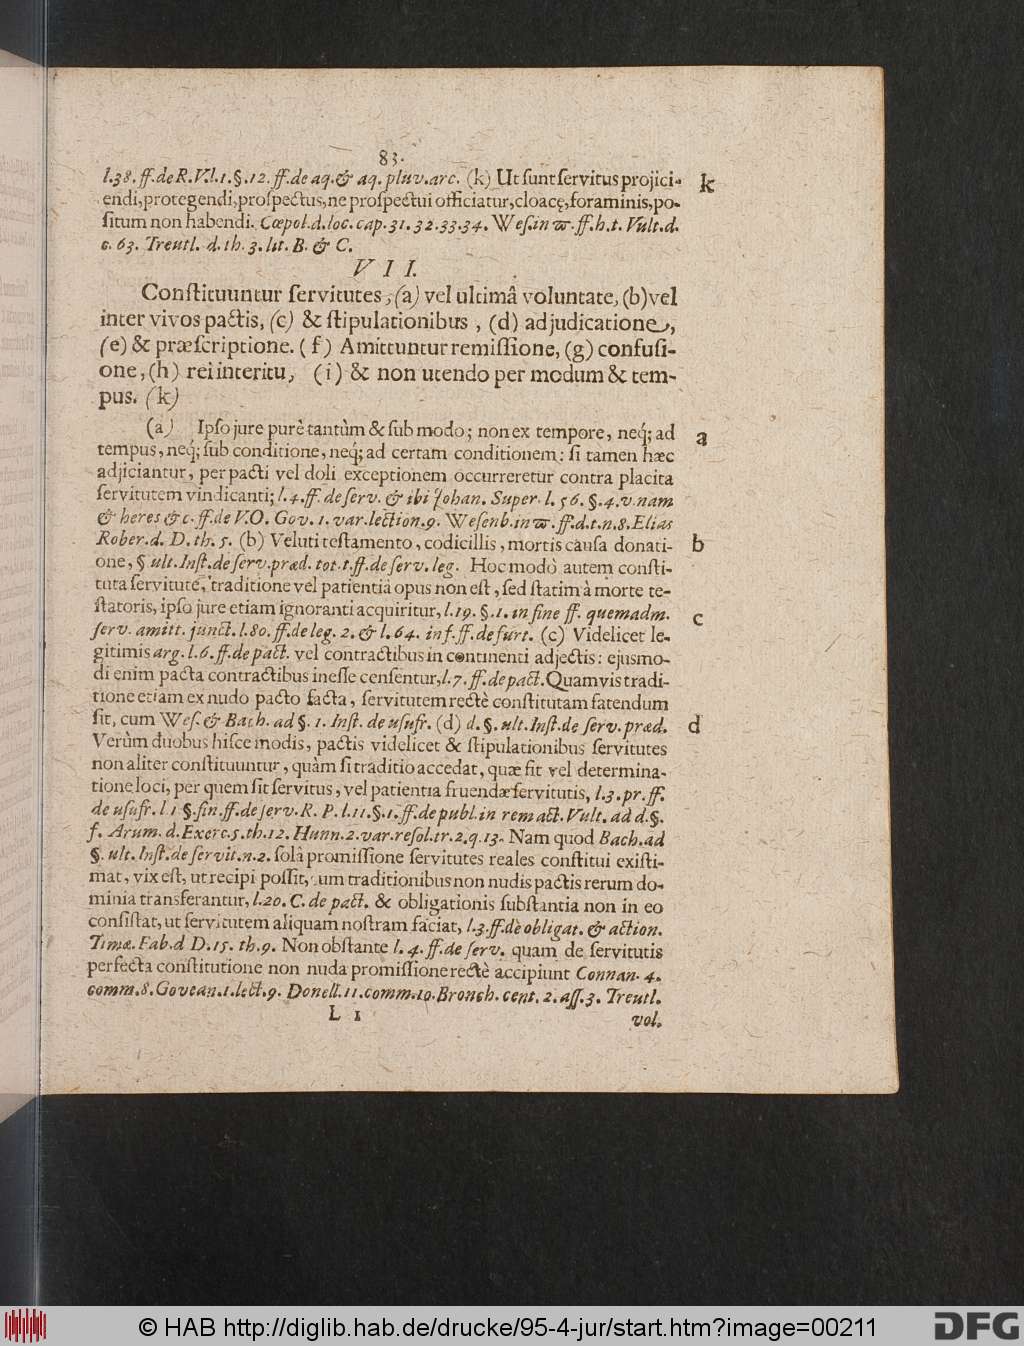 83.
l.38. ff. de R. V. l.1. §.12. ff. de aq. & aq. pluv. arc. (k) Ut sunt servitus projici-
k
endi, protegendi, prospectus, ne prospectui officiatur, cloacę, foraminis, po-
situm non habendi. Cœpol. d. loc. cap. 31. 32. 33. 34. Wes. in ϖ. ff. h. t. Vult. d.
c. 63. Treutl. d. th. 3. lit. B. & C.
VII.
Constituuntur servitutes, (a) vel ultimâ voluntate, (b) vel
inter vivos pactis, (c) & stipulationibus, (d) adjudicatione,
(e) & præscriptione. (f) Amittuntur remissione, (g) confusi-
one, (h) rei interitu, (i) & non utendo per modum & tem-
pus. (k)
(a) Ipso jure purè tantùm & sub modo; non ex tempore, neq́; ad
a
tempus, neq́; sub conditione, neq́; ad certam conditionem: si tamen hæc
adjiciantur, per pacti vel doli exceptionem occurreretur contra placita
servitutem vindicanti; l.4. ff. de serv. & ibi Johan. Super. l. 56. §.4. v. nam
& heres &c. ff. de V.O. Gov. 1. var. lection. 9. Wesenb. in ϖ. ff. d. t. n. 8. Elias
Rober. d. D. th. 5. (b) Veluti testamento, codicillis, mortis causa donati-
b
one, § ult. Inst. de serv. præd. tot. t. ff. de serv. leg. Hoc modò autem consti-
tuta servitute, traditione vel patientiâ opus non est, sed statim à morte te-
statoris, ipso jure etiam ignoranti acquiritur, l.19. §.1. in fine ff. quemadm.
c
serv. amitt. junct. l.80. ff. de leg. 2. & l. 64. in f. ff. de furt. (c) Videlicet le-
gitimis arg. l.6. ff. de pact. vel contractibus in continenti adjectis: ejusmo-
di enim pacta contractibus inesse censentur, l.7. ff. de pact. Quamvis tradi-
tione etiam ex nudo pacto facta, servitutem rectè constitutam fatendum
sit, cum Wes. & Bach. ad §. 1. Inst. de usufr. (d) d. §. ult. Inst. de serv. præd.
d
Verùm duobus hisce modis, pactis videlicet & stipulationibus servitutes
non aliter constituuntur, quàm si traditio accedat, quæ fit vel determina-
tione loci, per quem sit servitus, vel patientia fruendæ servitutis, l.3. pr. ff.
de usufr. l 1 §. fin. ff. de serv. R. P. l.11. §.1. ff. de publ. in rem act. Vult. ad d. §.
f. Arum. d. Exerc. 5. th. 12. Hunn. 2. var. resol. tr. 2. q. 13. Nam quod Bach. ad
§. ult. Inst. de servit. n. 2. solâ promissione servitutes reales constitui existi-
mat, vix est, ut recipi possit, cum traditionibus non nudis pactis rerum do-
minia transferantur, l.20. C. de pact. & obligationis substantia non in eo
consistat, ut servitutem aliquam nostram faciat, l.3. ff. de obligat. & action.
Timæ. Fab. d D. 15. th. 9. Non obstante l. 4. ff. de serv. quam de servitutis
perfecta constitutione non nuda promissione rectè accipiunt Connan. 4.
comm. 8. Govean. 1. lect. 9. Donell. 11. comm. 10. Bronch. cent. 2. ass. 3. Treutl.
L 1
vol.
© HAB http://diglib.hab.de/drucke/95-4-jur/start.htm?image=00211
DFG